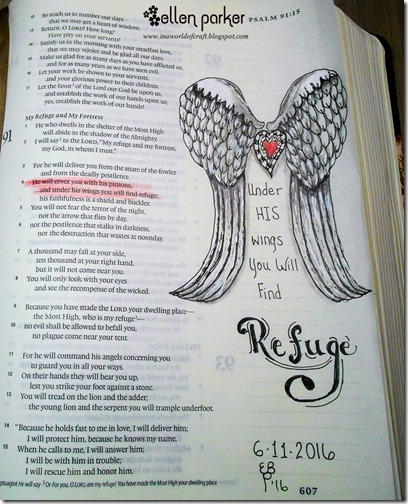 ellen parker
www.inaworldofcraft.blogspot.com
PSALM 91:15
12 So teach us to number our days
that we may get a heart of wisdom.
13 Return, O LORD! How long?
Have pity on your servants!
14 Satisfy us in the morning with your steadfast love,
that we may rejoice and be glad all our days.
15 Make us glad for as many days as you have afflicted us,
and for as many years as we have seen evil.
16 Let your work be shown to your servants,
and your glorious power to their children.
17 Let the favor of the Lord our God be upon us,
and establish the work of our hands upon us;
yes, establish the work of our hands!
My Refuge and My Fortress
91
1 He who dwells in the shelter of the Most High
will abide in the shadow of the Almighty.
2 I will say to the LORD, "My refuge and my fortress,
my God, in whom I trust."
3 For he will deliver you from the snare of the fowler
and from the deadly pestilence.
4 He will cover you with his pinions,
and under his wings you will find refuge;
his faithfulness is a shield and buckler.
5 You will not fear the terror of the night,
nor the arrow that flies by day,
6 nor the pestilence that stalks in darkness,
nor the destruction that wastes at noonday.
7 A thousand may fall at your side,
ten thousand at your right hand,
but it will not come near you.
8 You will only look with your eyes
and see the recompense of the wicked.
9 Because you have made the LORD your dwelling place—
the Most High, who is my refuge—
10 no evil shall be allowed to befall you,
no plague come near your tent.
11 For he will command his angels concerning you
to guard you in all your ways.
12 On their hands they will bear you up,
lest you strike your foot against a stone.
13 You will tread on the lion and the adder;
the young lion and the serpent you will trample underfoot.
14 "Because he holds fast to me in love, I will deliver him;
I will protect him, because he knows my name.
15 When he calls to me, I will answer him;
I will be with him in trouble;
I will rescue him and honor him.
Septuagint He will say 3 Or For you, O LORD, are my refuge! You have made the Most High your dwelling place
Under
HIS
wings
You Will
Find
Refuge
6-11-2016
EB
P'16
607